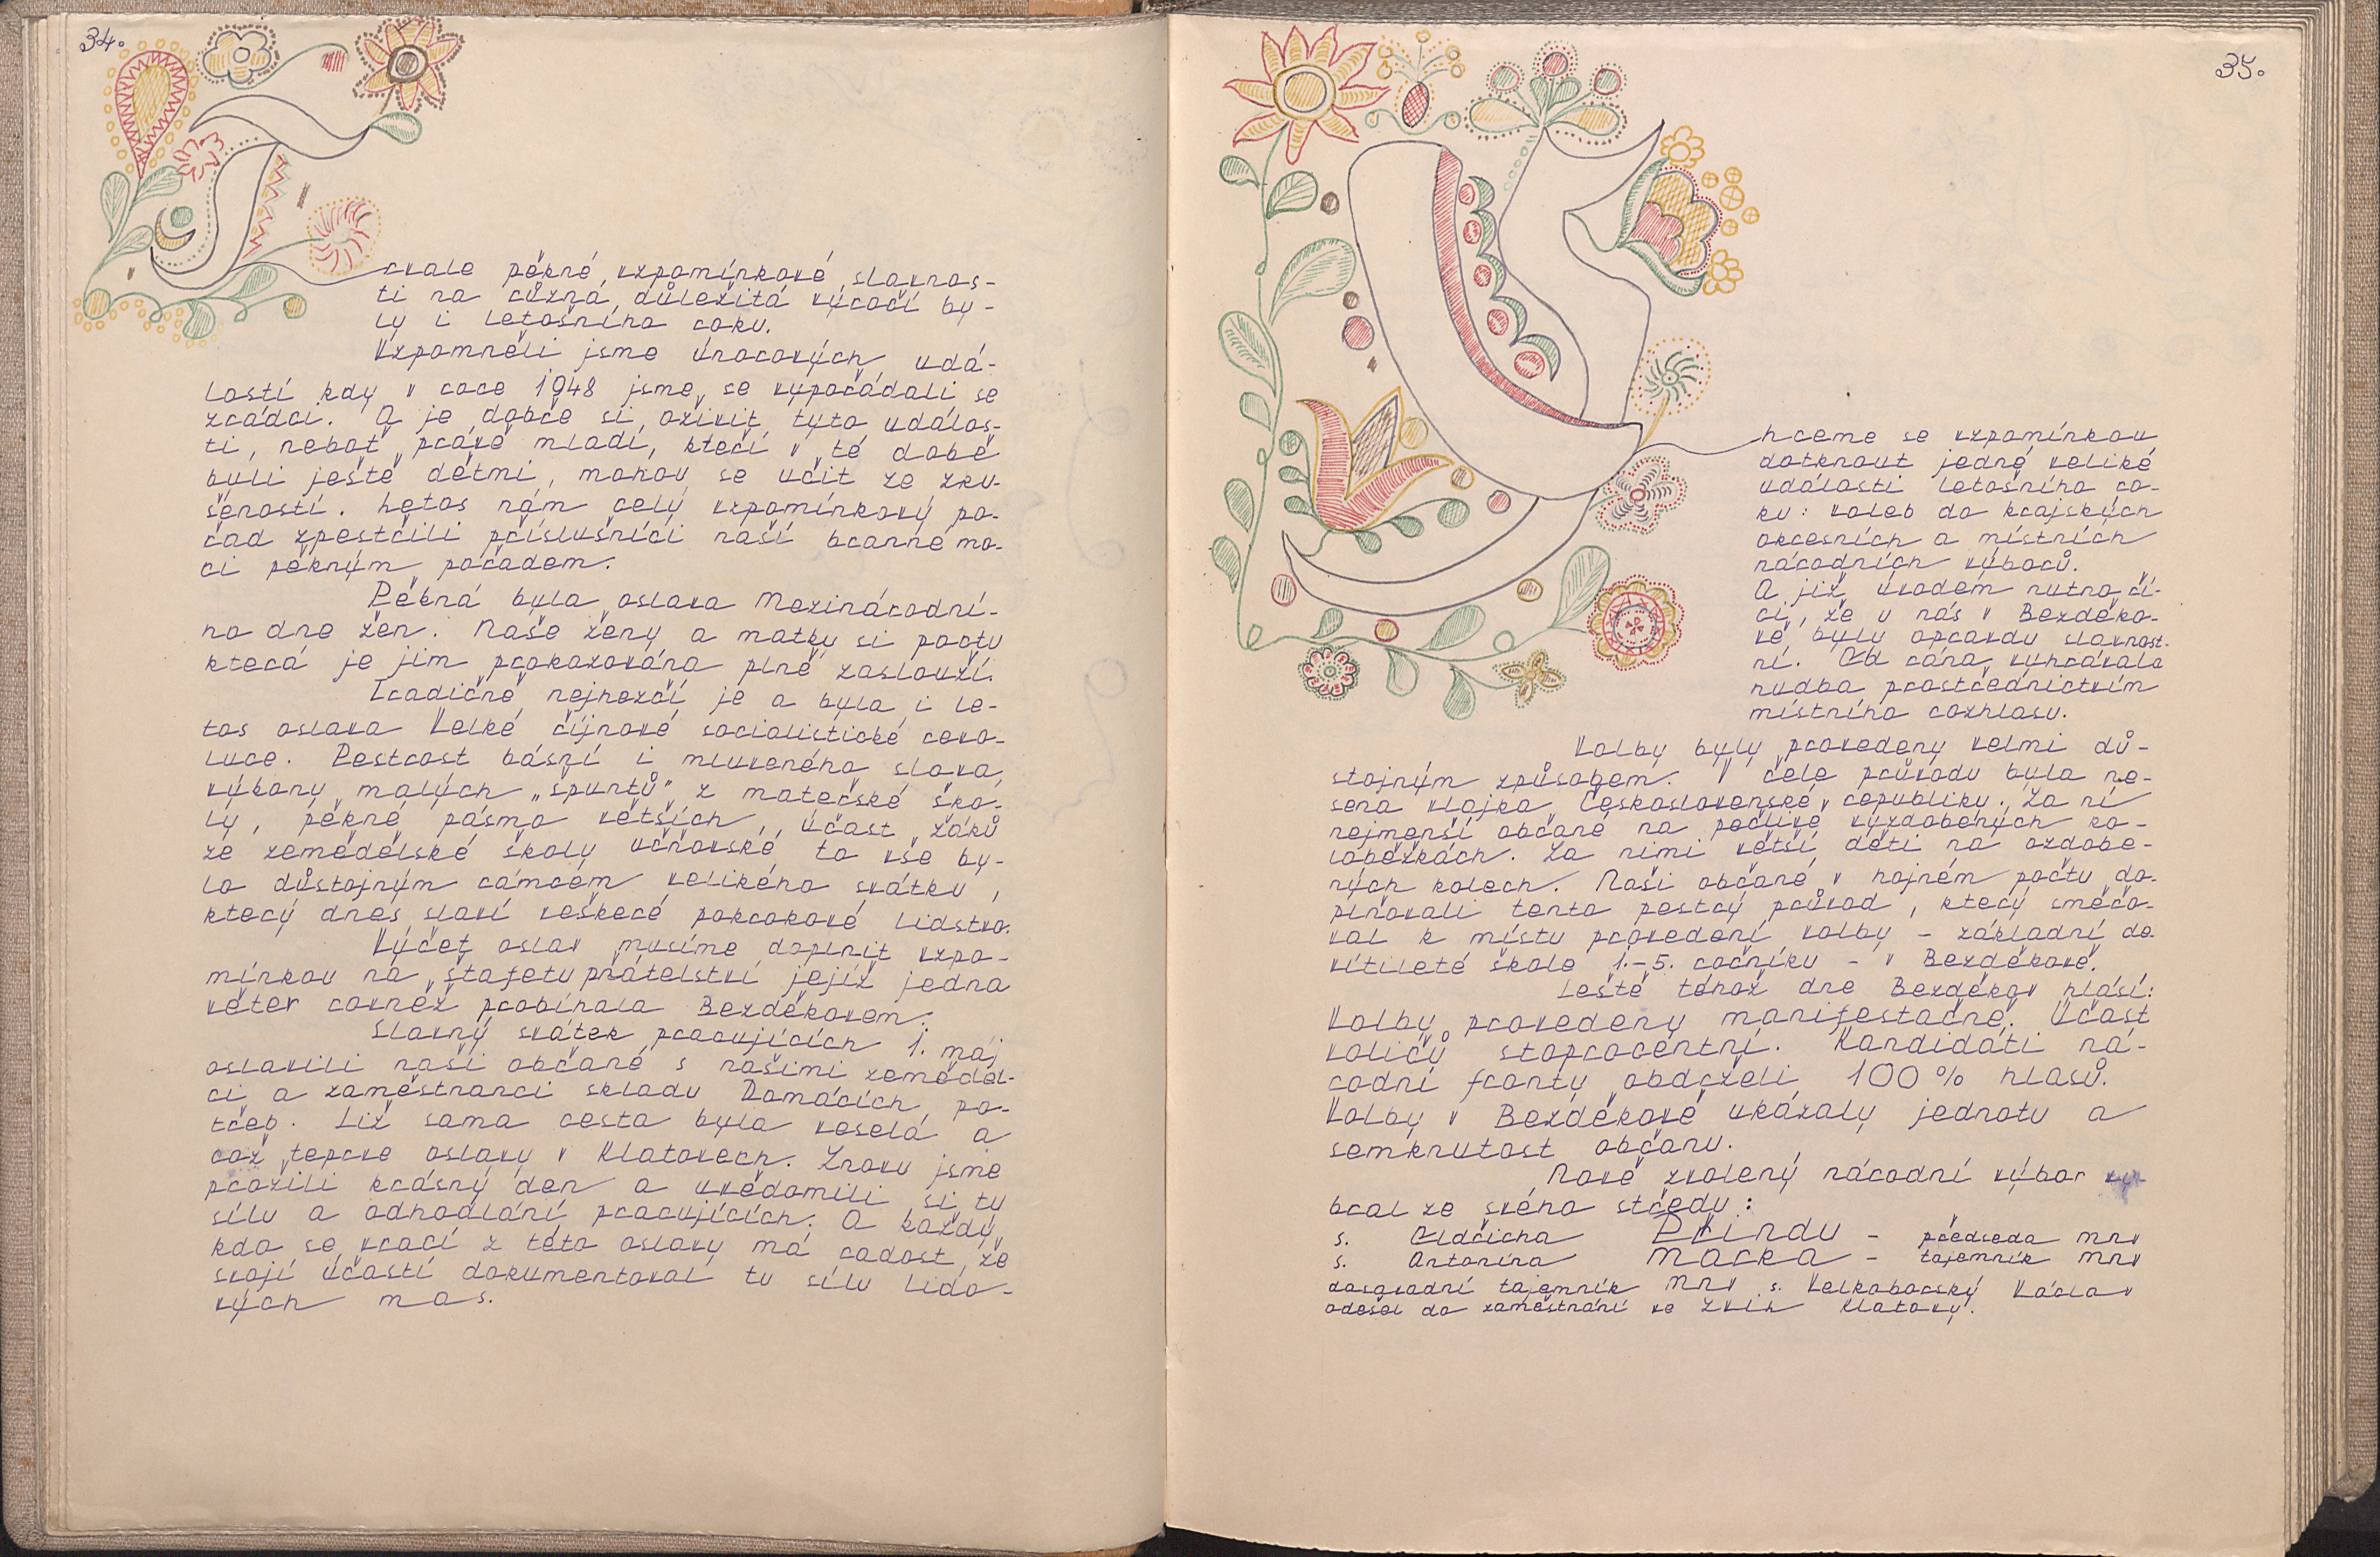 34.
Trvale pěkné vzpomínkové slavnos-
ti na různá důležitá výročí by-
ly i letošního roku.
Vzpomněli jsme únorových udá-
lostí kdy v roce 1948 jsme se vypořádali se
zrádci. A je dobře si oživit tyto událos-
ti, neboť právě mladí, kteří v té době
byli ještě dětmi, mohou se učit ze zku-
šeností. Letos nám celý vzpomínkový po-
řad zpestřili příslušníci naší branné mo-
ci pěkným pořadem.
Pěkná byla oslava Mezinárodní-
ho dne žen. Naše ženy a matky si poctu
která je jim prokazována plně zaslouží.
Tradičně nejhezčí je a byla i le-
tos oslava Velké říjnové socialistické revo-
luce. Pestrost básní i mluveného slova,
výkony malých „špuntů" z mateřské ško-
ly, pěkné pásmo větších, účast žáků
ze zemědělské školy učňovské to vše by-
lo důstojným rámcem velikého svátku,
který dnes slaví veškeré pokrokové lidstvo.
Výčet oslav musíme doplnit vzpo-
mínkou na štafetu přátelství jejíž jedna
větev rovněž probíhala Bezděkovem.
Slavný svátek pracujících 1. máj
oslavili naši občané s našimi zeměděl-
ci a zaměstnanci skladu Domácích po-
třeb. Již sama cesta byla veselá a
což teprve oslavy v Klatovech. Znovu jsme
prožili krásný den a uvědomili si tu
sílu a odhodlání pracujících. A každý
kdo se vrací z této oslavy má radost, že
svojí účastí dokumentoval tu sílu lido-
vých mas.
35.
Chceme se vzpomínkou
dotknout jedné veliké
události letošního ro-
ku: voleb do krajských
okresních a místních
národních výborů.
A již úvodem nutno ří-
ci, že u nás v Bezděko-
vě byly opravdu slavnost-
ní. Od rána vyhrávala
hudba prostřednictvím
místního rozhlasu.
Volby byly provedeny velmi dů-
stojným způsobem. V čele průvodu byla ne-
sena vlajka Československé republiky. Za ní
nejmenší občané na pečlivě vyzdobených ko-
loběžkách. Za nimi větší děti na ozdobe-
ných kolech. Naši občané v hojném počtu do-
plňovali tento pestrý průvod, který směřo-
val k místu provedení volby - základní de-
vítileté škole 1.-5. ročníku - v Bezděkově.
Ještě téhož dne Bezděkov hlásí:
Volby provedeny manifestačně. Účast
voličů stoprocentní. Kandidáti ná-
rodní fronty obdrželi 100% hlasů.
Volby v Bezděkově ukázaly jednotu a
semknutost občanu.
Nově zvolený národní výbor vy-
bral ze svého středu:
s. Oldřicha Přindu - předseda MNV
s. Antonína Macka - tajemník MNV
dosavadní tajemník MNV s. Velkoborský Václav
odešel do zaměstnání ve ZVIL Klatovy.